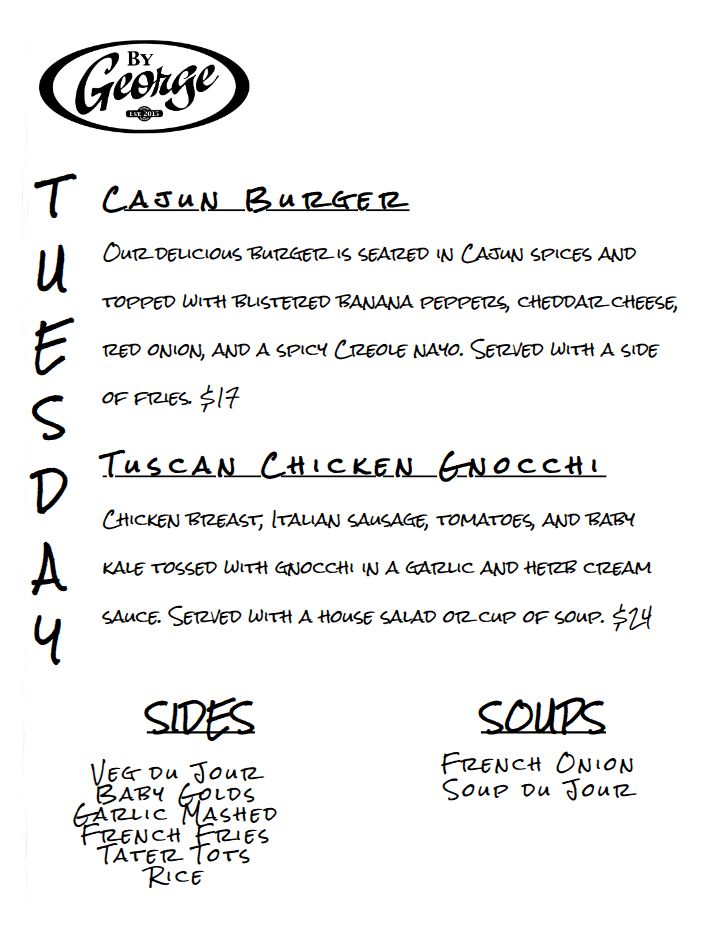 By
George
EST. 2015
TUESDAY
Cajun Burger
Our delicious burger is seared in Cajun spices and
topped with blistered banana peppers, cheddar cheese,
red onion, and a spicy Creole nayo. Served with a side
of fries. $17
Tuscan Chicken Gnocchi
Chicken breast, Italian sausage, tomatoes, and baby
kale tossed with gnocchi in a garlic and herb cream
sauce. Served with a house salad or cup of soup. $24
SIDES
Veg du Jour
Baby Golds
Garlic Mashed
French Fries
Tater Tots
Rice
SOUPS
French Onion
Soup du Jour